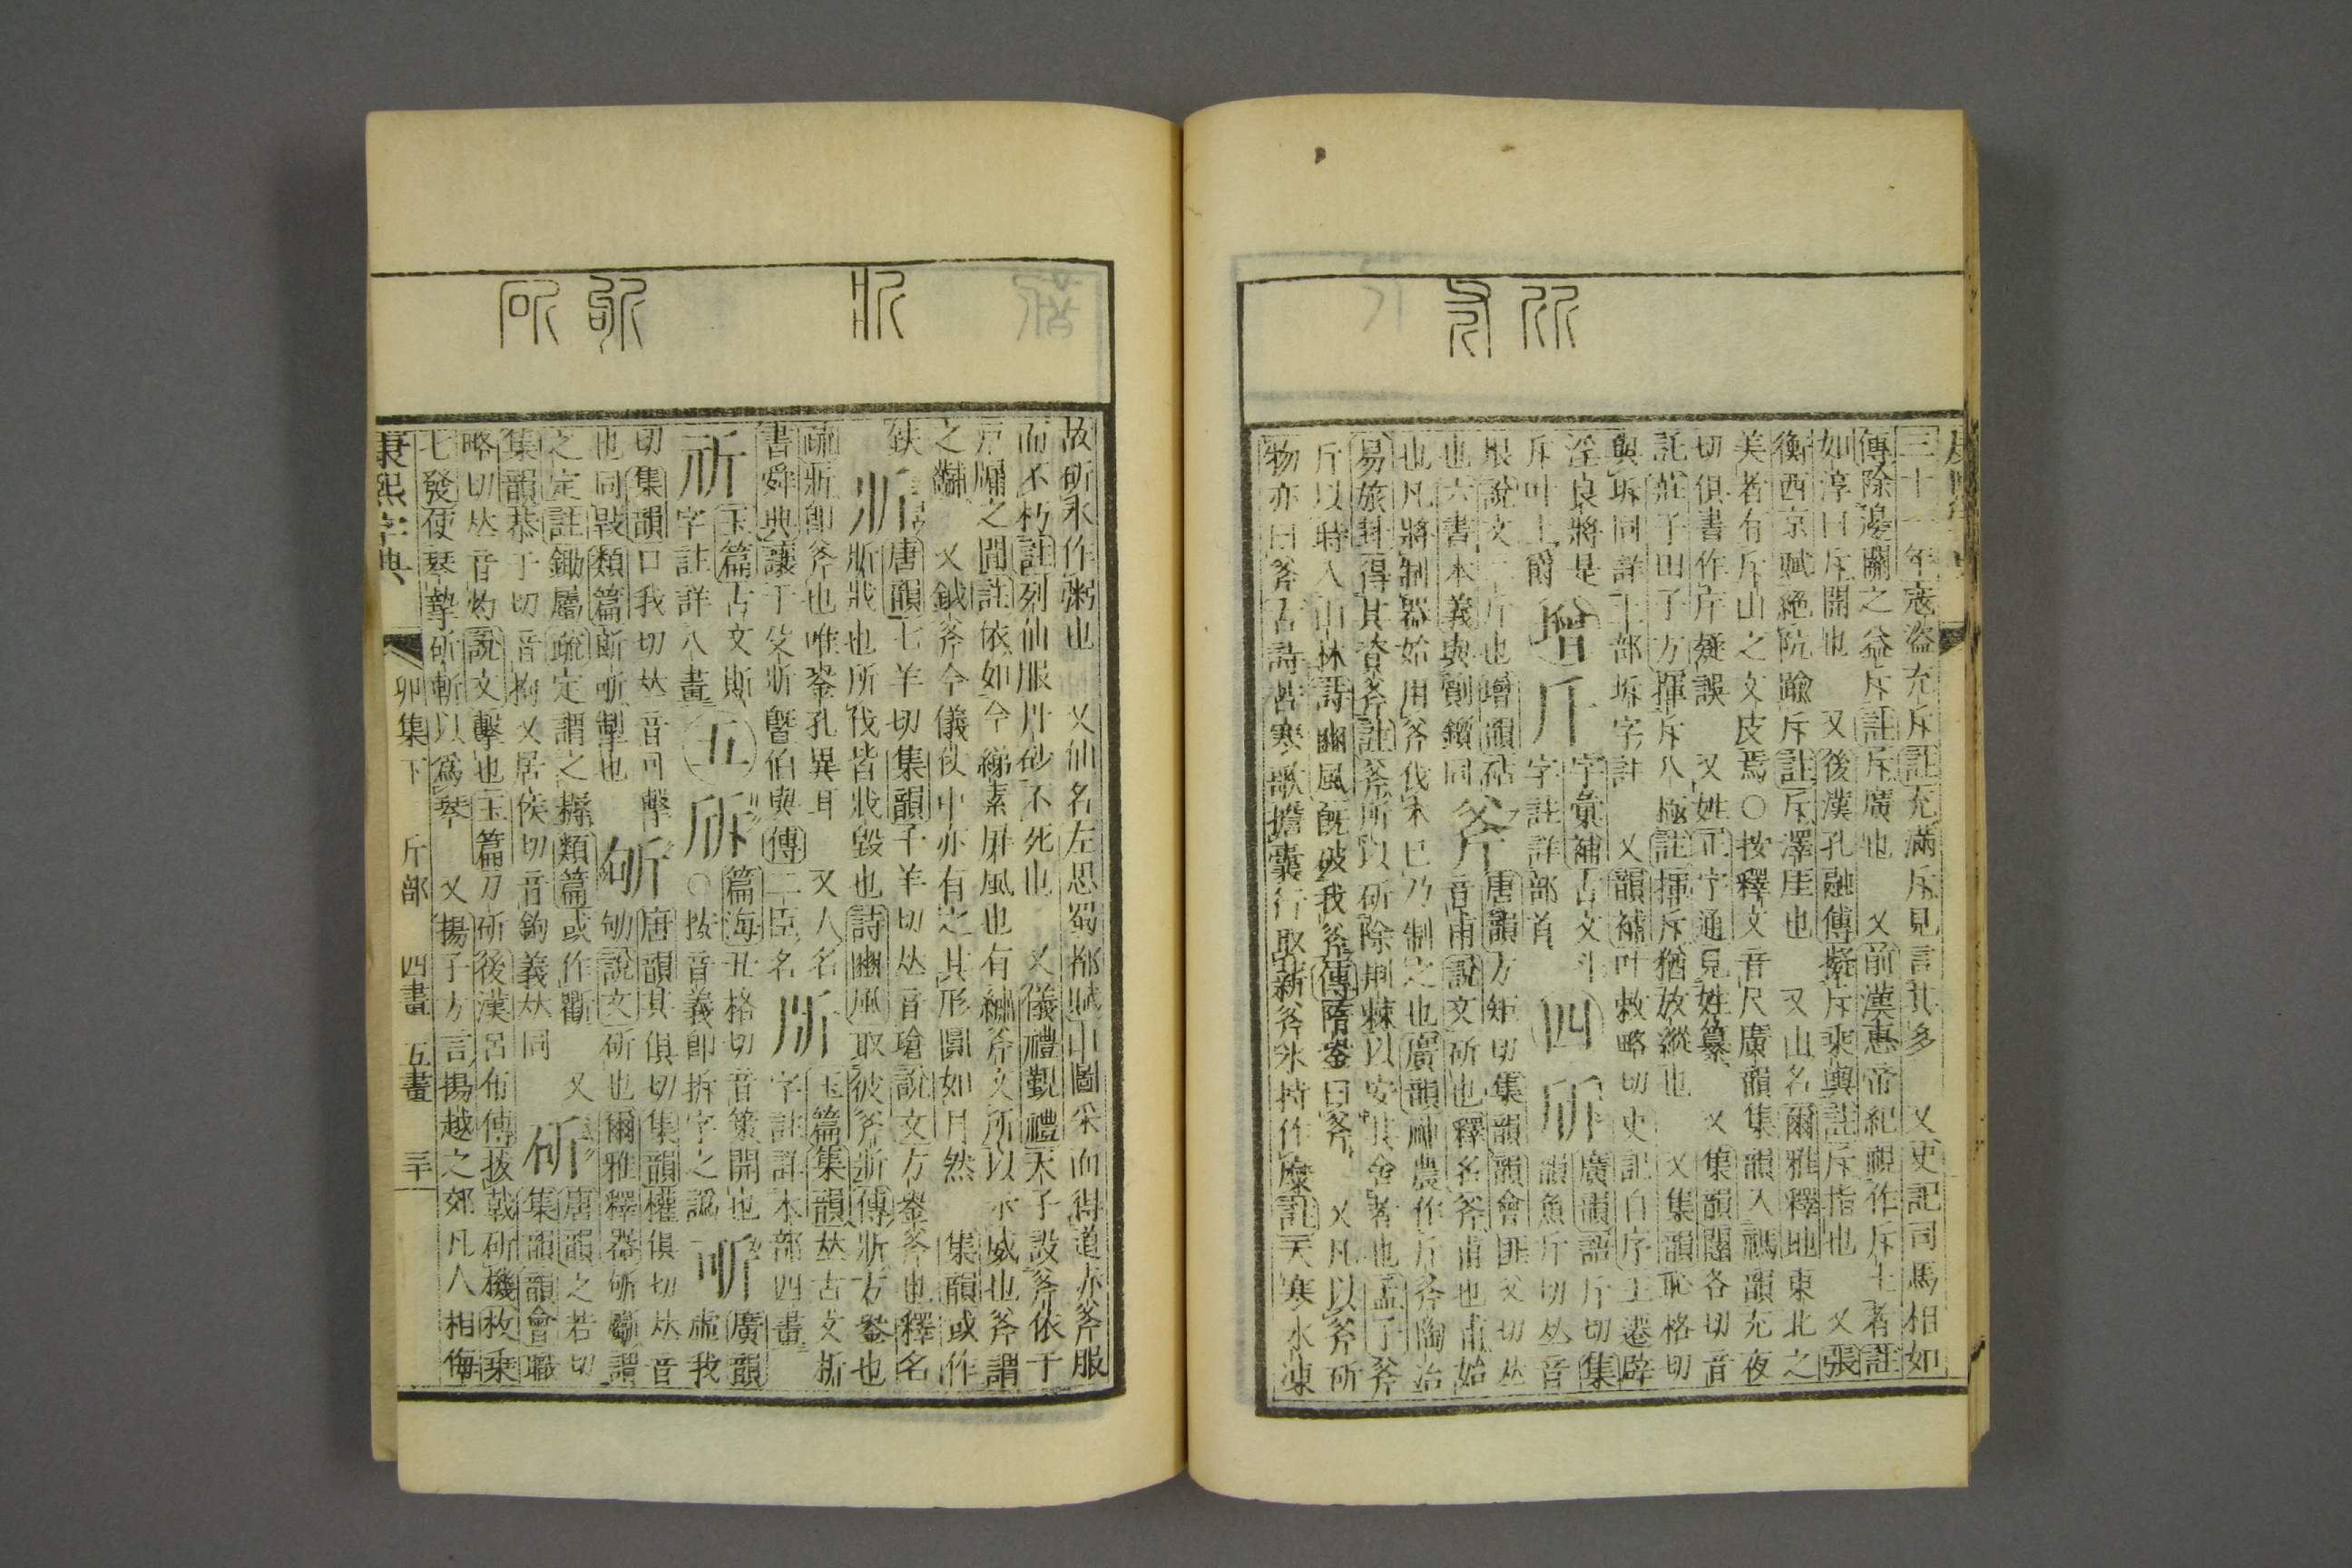 三十一年寇盜充斥註充滿斥見言其多　又史記司馬相如
傳除邊關之益斥註斥廣也　又前漢惠帝紀視作斥土者註
如淳曰斥開也　又後漢孔融傳擬斥乘輿註斥指也　又張
衡西京賦絕阬踰斥註斥澤厓也　又山名爾雅釋地東北之
美者有斥山之文皮焉○按釋文音尺廣韻集韻入禡韻充夜
切俱書作斥疑誤　又姓正字通見姓纂　又集韻闥各切音
託莊子田子方揮斥八極註揮斥猶放縱也　又集韻恥格切
與坼同詳土部坼字註　又韻補叶敕略切史記自序王遷辟
淫良將是
斥叶上爵
增
斤
字彙補古文斗
字註詳部首
四
斦
廣韻語斤切集
韻魚斤切𠀤音
垠說文二斤也增韻砧
也六書本義與劕鑕同
斧
唐韻方矩切集韻韻會匪父切𠀤
音甫說文斫也釋名斧甫也甫始
也凡將制器始用斧伐木已乃制之也廣韻神農作斤斧陶冶
易旅卦得其資斧註斧所以斫除荆棘以安其舍者也孟子斧
斤以時入山林詩豳風旣破我斧傳隋銎曰斧　又凡以斧斫
物亦曰斧古詩苦寒歌擔囊行取薪斧冰持作糜註天寒水凍
故斫冰作粥也　又仙名左思蜀都賦山圖采而得道赤斧服
而不朽註列仙服丹砂不死也　又儀禮覲禮天子設斧依于
戸牖之閒註依如今綈素屛風也有繡斧文所以示威也斧謂
之黼　又鉞斧今儀仗中亦有之其形圓如月然　集韻或作
鈇
斨
唐韻七羊切集韻千羊切𠀤音瑲說文方銎斧也釋名
斨戕也所伐皆戕毀也詩豳風取彼斧斨傳斨方銎也
疏斨卽斧也唯銎孔異耳　又人名
書舜典讓于殳斨曁伯與傳二臣名
所
玉篇集韻𠀤古文斯
字註詳本部四畫
玉篇古文斯
字註詳八畫
五
篇海丑格切音策開也
○按音義卽拆字之譌
廣韻
虛我
切集韻口我切𠀤音可擊
也同㪃類篇斷斫掣也
斪
唐韻其俱切集韻權俱切𠀤音
劬說文斫也爾雅釋器斫斸謂
之定註鋤屬疏定謂之耨類篇或作㔽　又
集韻恭于切音拘又居侯切音鉤義𠀤同
斫
唐韻之若切
集韻韻會職
略切𠀤音灼說文擊也玉篇刀斫後漢呂布傳拔戟斫機枚乘
七發使琴摯斫斬以爲琴　又揚子方言揚越之郊凡人相侮
康熙字典　卯集下　斤部　四畫　五畫　三十